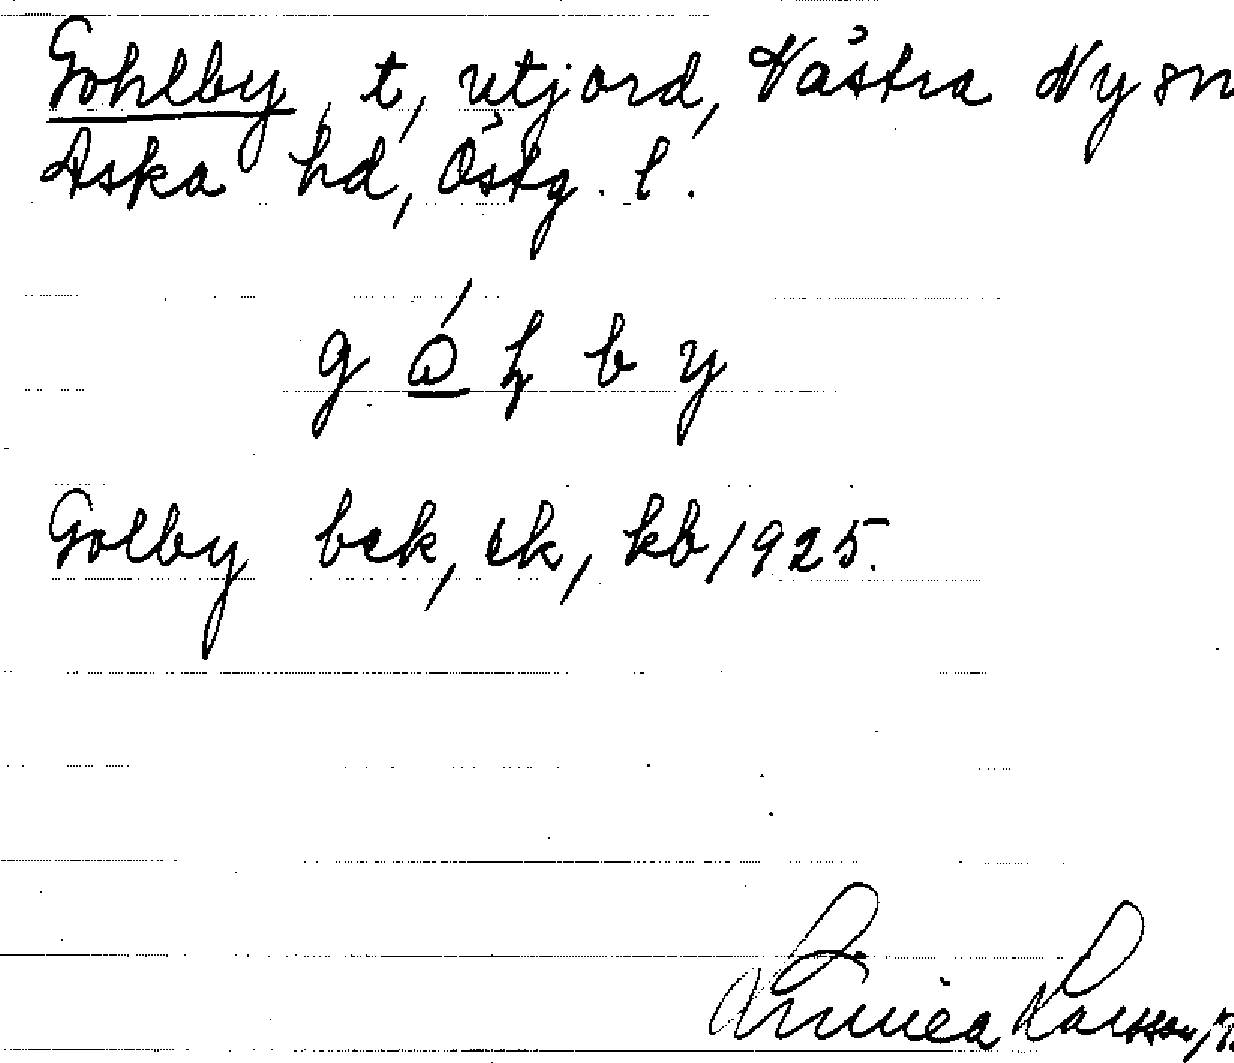 Gohlby, t, utjord, Västra Ny sn
Aska hd, Östg. l.
g ó̲ l b y
Golby bek, ek, kb/1925.
Linnea Larsson